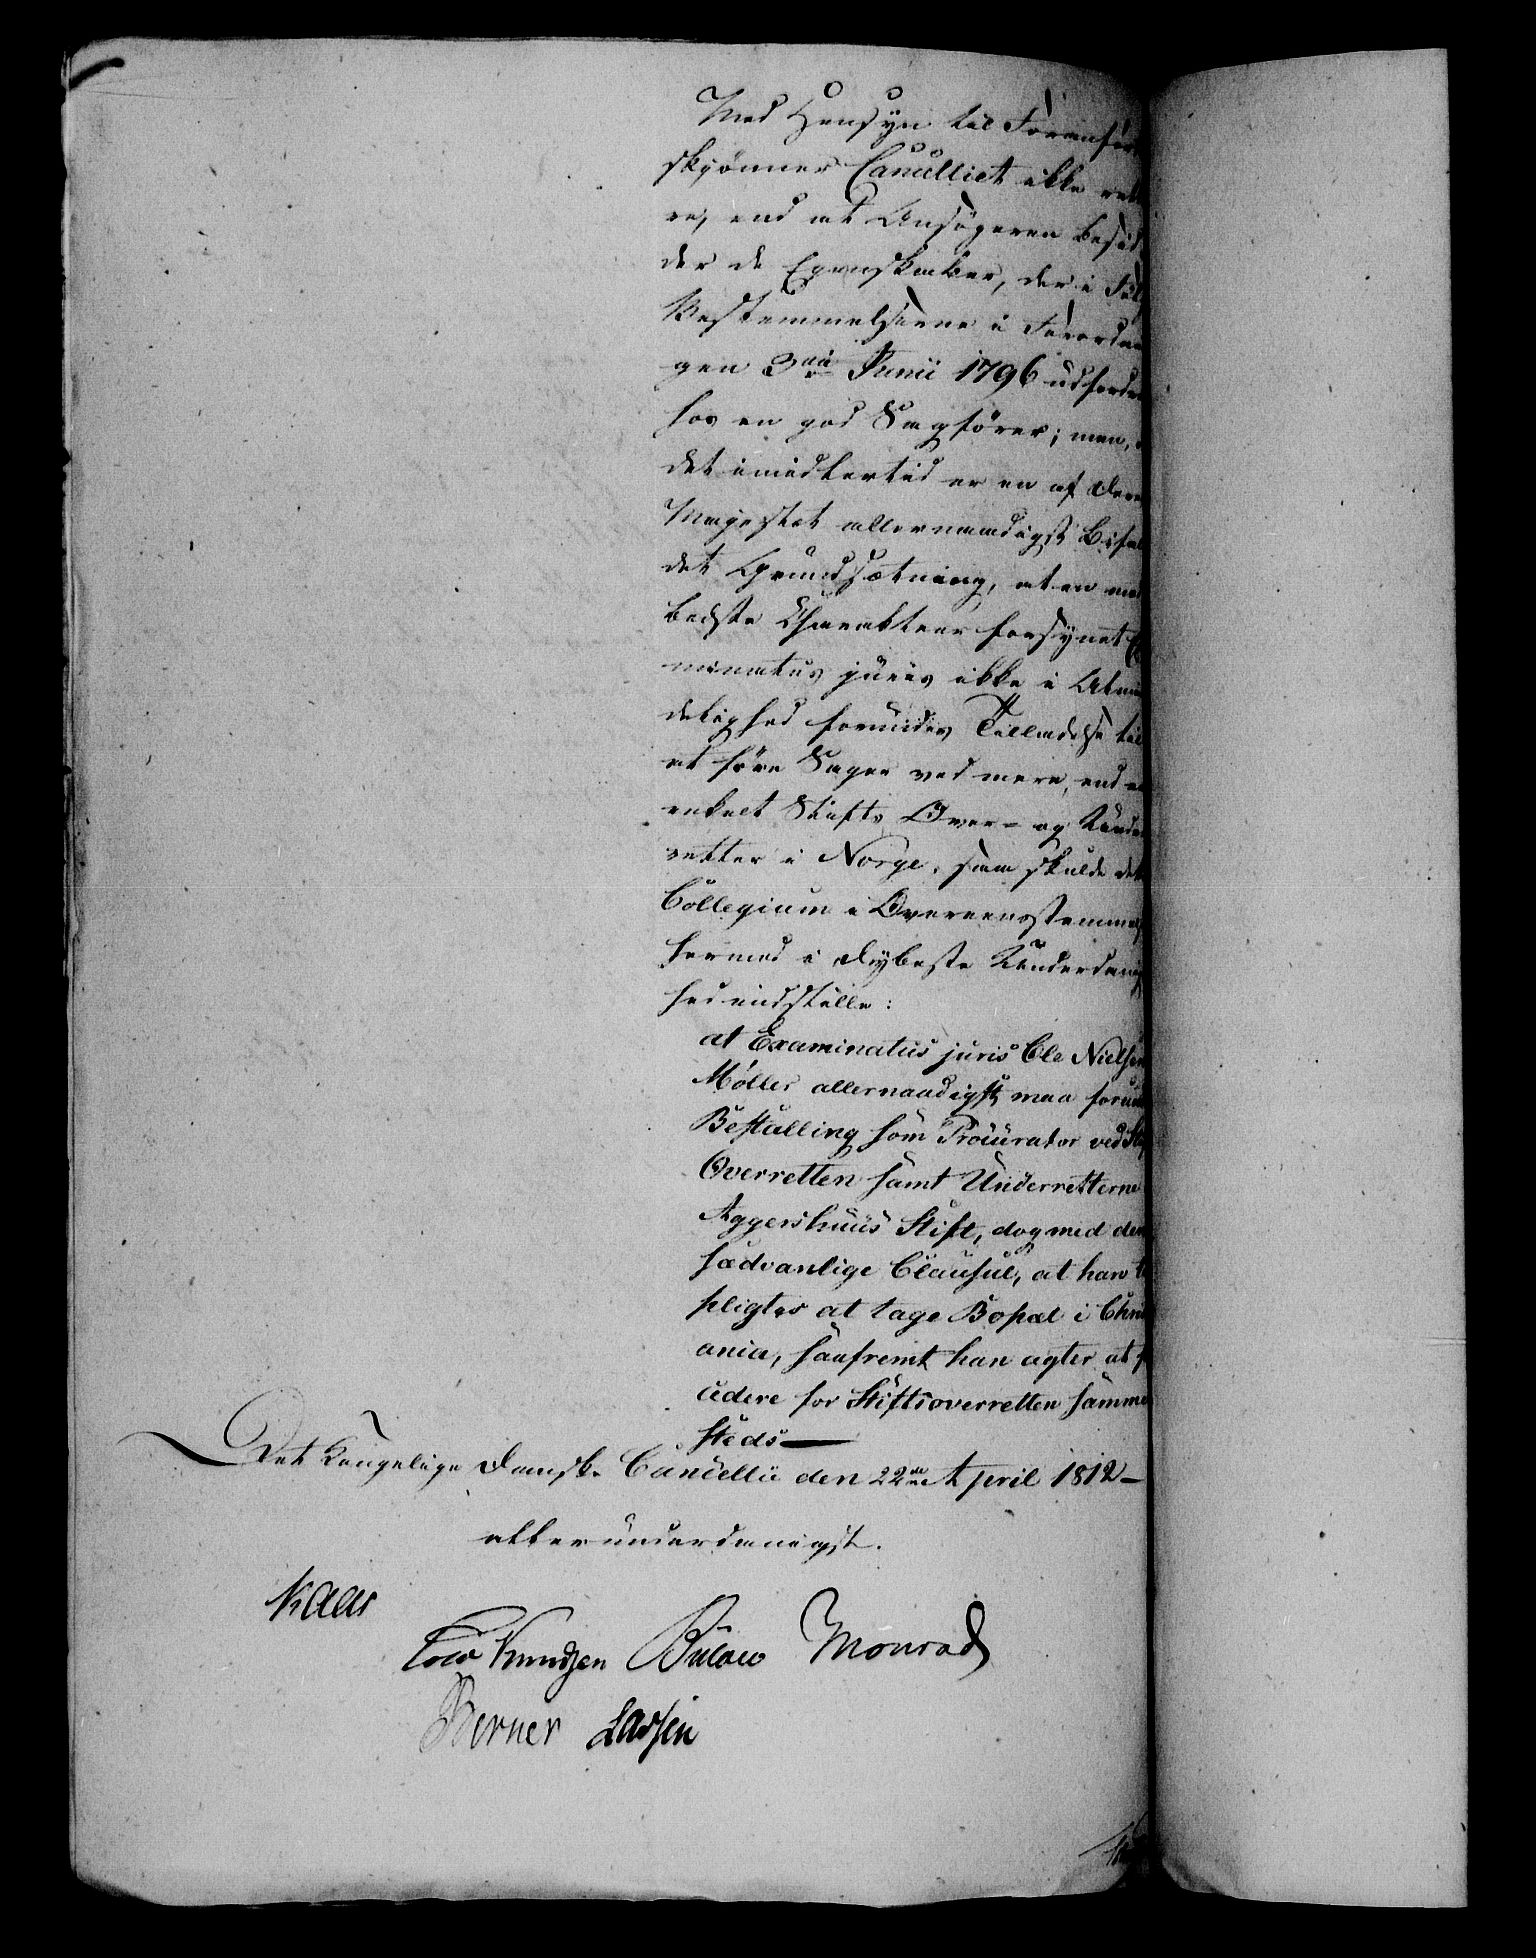 Med Hensyn til Foranfør
skjønner Cancelliet ikke ret
re, end at Ansøgeren besid
der de Egenskaber, der i Føl
Bestemmelserne i Forordni
gen 3die Junii 1796 udfordre
hos en god Sagfører; men,
det imidlertid er en af Deres
Majestæt allernaadigst bifal
det Grundsætning, at en med
bedste Charakteer forsynet Ex
minatus juris ikke i Almin
delighed forundes Tilladelse til
at føre Sager ved mere, end et
enkelt Stifts Over- og Under
retter i Norge, saa skulde dette
Collegium i Overeensstemmels
hermed i dybeste Underdanig
hed indstille:
at Examinatus juris Ole Nielsen
Møller allernaadigst maa forun
Bestalling som Procurator ved Sti
Overretten samt Underretterne
Aggershuus Stift, dog med den
sædvanlige Clausul, at han
pligtes at tage Bopæl i Chri
ania, saafremt han agter at
cedere for Stiftsoverretten samme
steds—
Det Kongelige Danske Cancellie den 22de April 1812—
allerunderdanigst.
Kaas
Knudsen Bülow Monrad
Berner Lassen